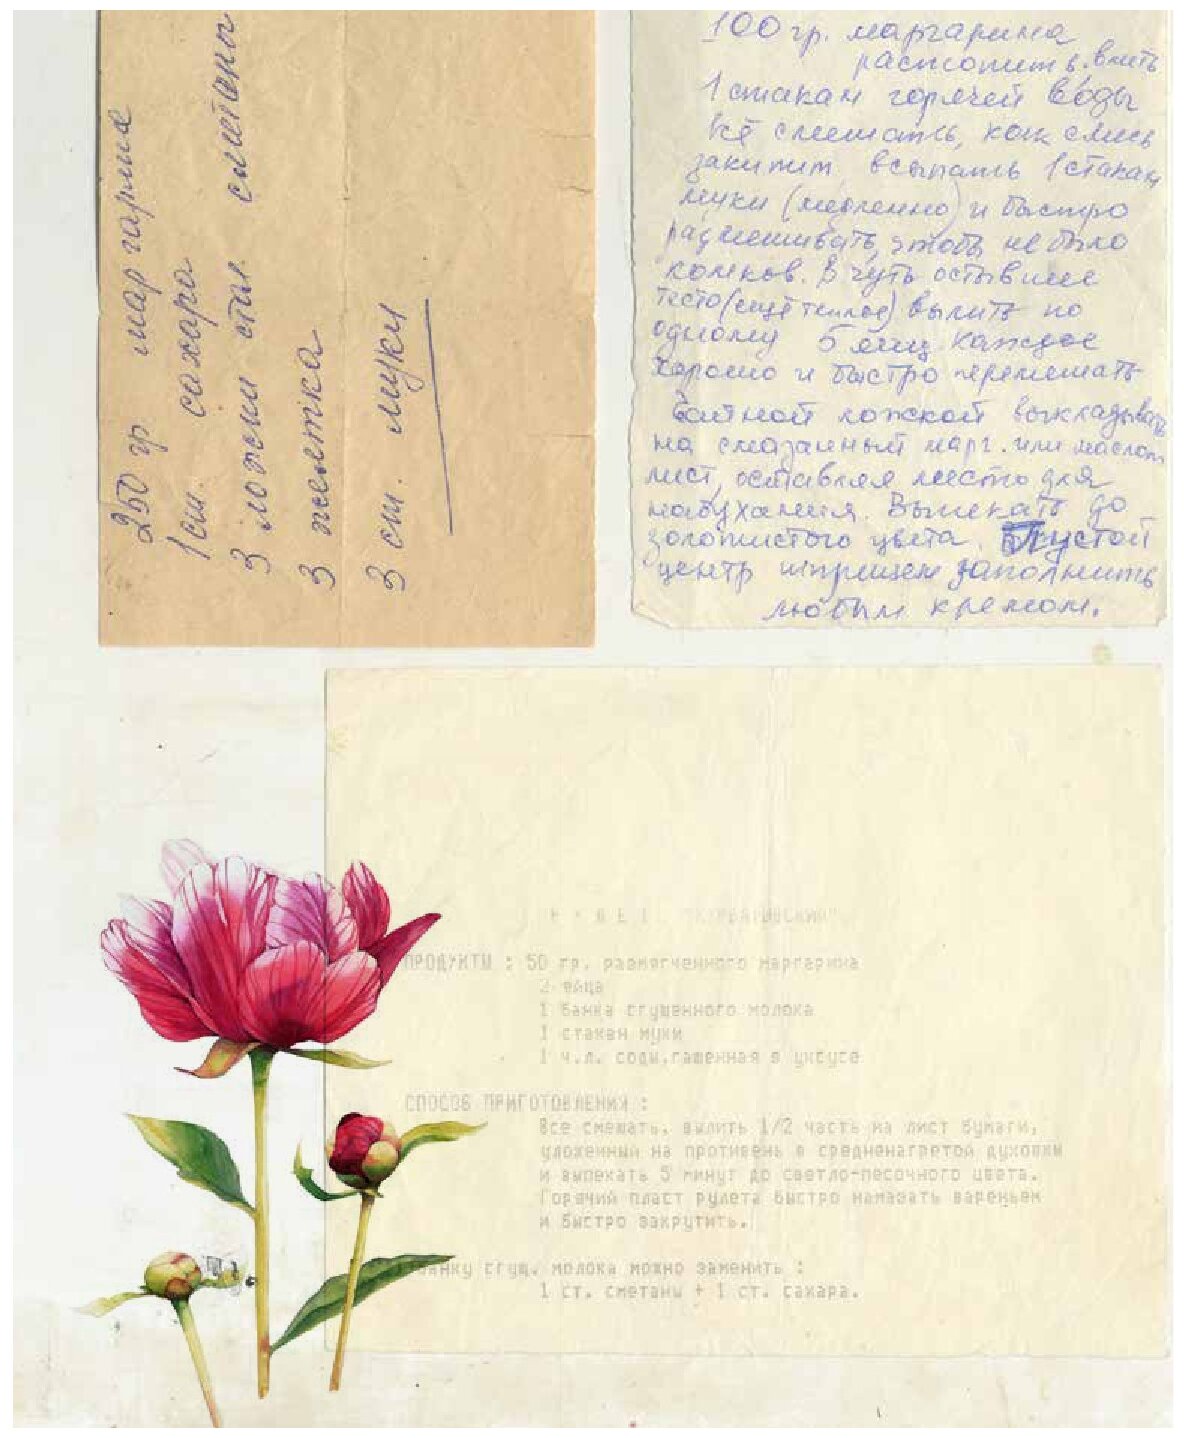 250 гр маргарина
1 ст. сахара
3 ложки стол. сметаны
3 желтка
3 ст. муки
100 гр. маргарина
растопить. влить
1 стакан горячей воды
всё смешать, как смесь
закипит всыпать 1 стакан
муки (медленно) и быстро
размешивать, чтобы не было
комков. В чуть остывшее
тесто (ещё теплое) вылить по
одному 5 яиц каждое
хорошо и быстро перемешать
ложкой выкладывать
на смазанный марг. или маслом
лист, оставляя место для
набухания. Выпекать до
золотистого цвета. Пустой
центр шприцем заполнить
любым кремом.
ПРОДУКТЫ : 50 гр. размягченного маргарина
2 яйца
1 банка сгущенного молока
1 стакан муки
1 ч.л. соды,гашенная в уксусе
СПОСОБ ПРИГОТОВЛЕНИЯ :
Все смешать, вылить 1/2 часть на лист бумаги,
уложенный на противень в средненагретой духовки
и выпекать 5 минут до светло-песочного цвета.
Горячий пласт рулета быстро намазать вареньем
и быстро закрутить.
банку сгущ. молока можно заменить :
1 ст. сметаны + 1 ст. сахара.